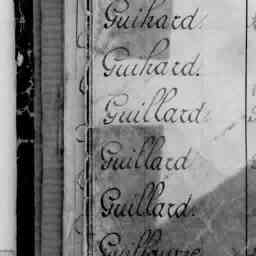 Guihard.
Guihard.
Guillard.
Guillard
Guillard.